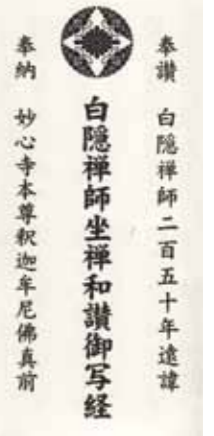 奉讃 白隠禅師二百五十年遠諱
白隠禅師坐禅和讃御写経
奉納 妙心寺本尊釈迦牟尼佛真前